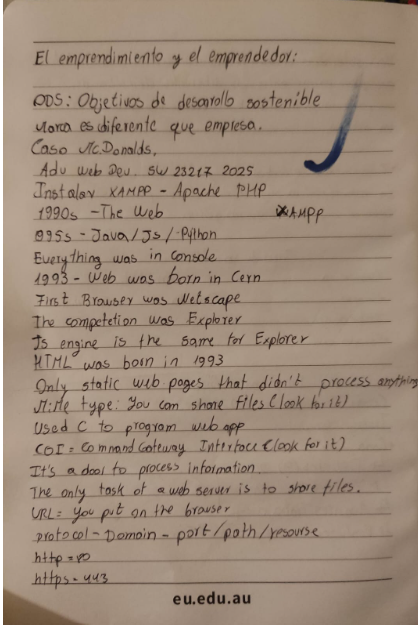 El emprendimiento y el emprendedor:
ODS: Objetivos de desarollo sostenible
Marca es diferente que empresa.
Caso McDonalds.
Adv Web Dev. SW 23217 2025
Instalar XAMPP - Apache PHP
1990s - The Web XAMPP
995s - Java/Js/-Python
Everything was in console
1993 - Web was born in Cern
First Browser was Netscape
The competetion was Explorer
Js engine is the same for Explorer
HTML was born in 1993
Only static web pages that didn't process anything
Mime type: You can share files (look for it)
Used C to program web app
CGI = Command Gateway Interface (look for it)
It's a dool to process information.
The only task of a web server is to share files.
URL = You put on the browser
protocol - Domain - port/path/resourse
http = 80
https = 443
eu.edu.au